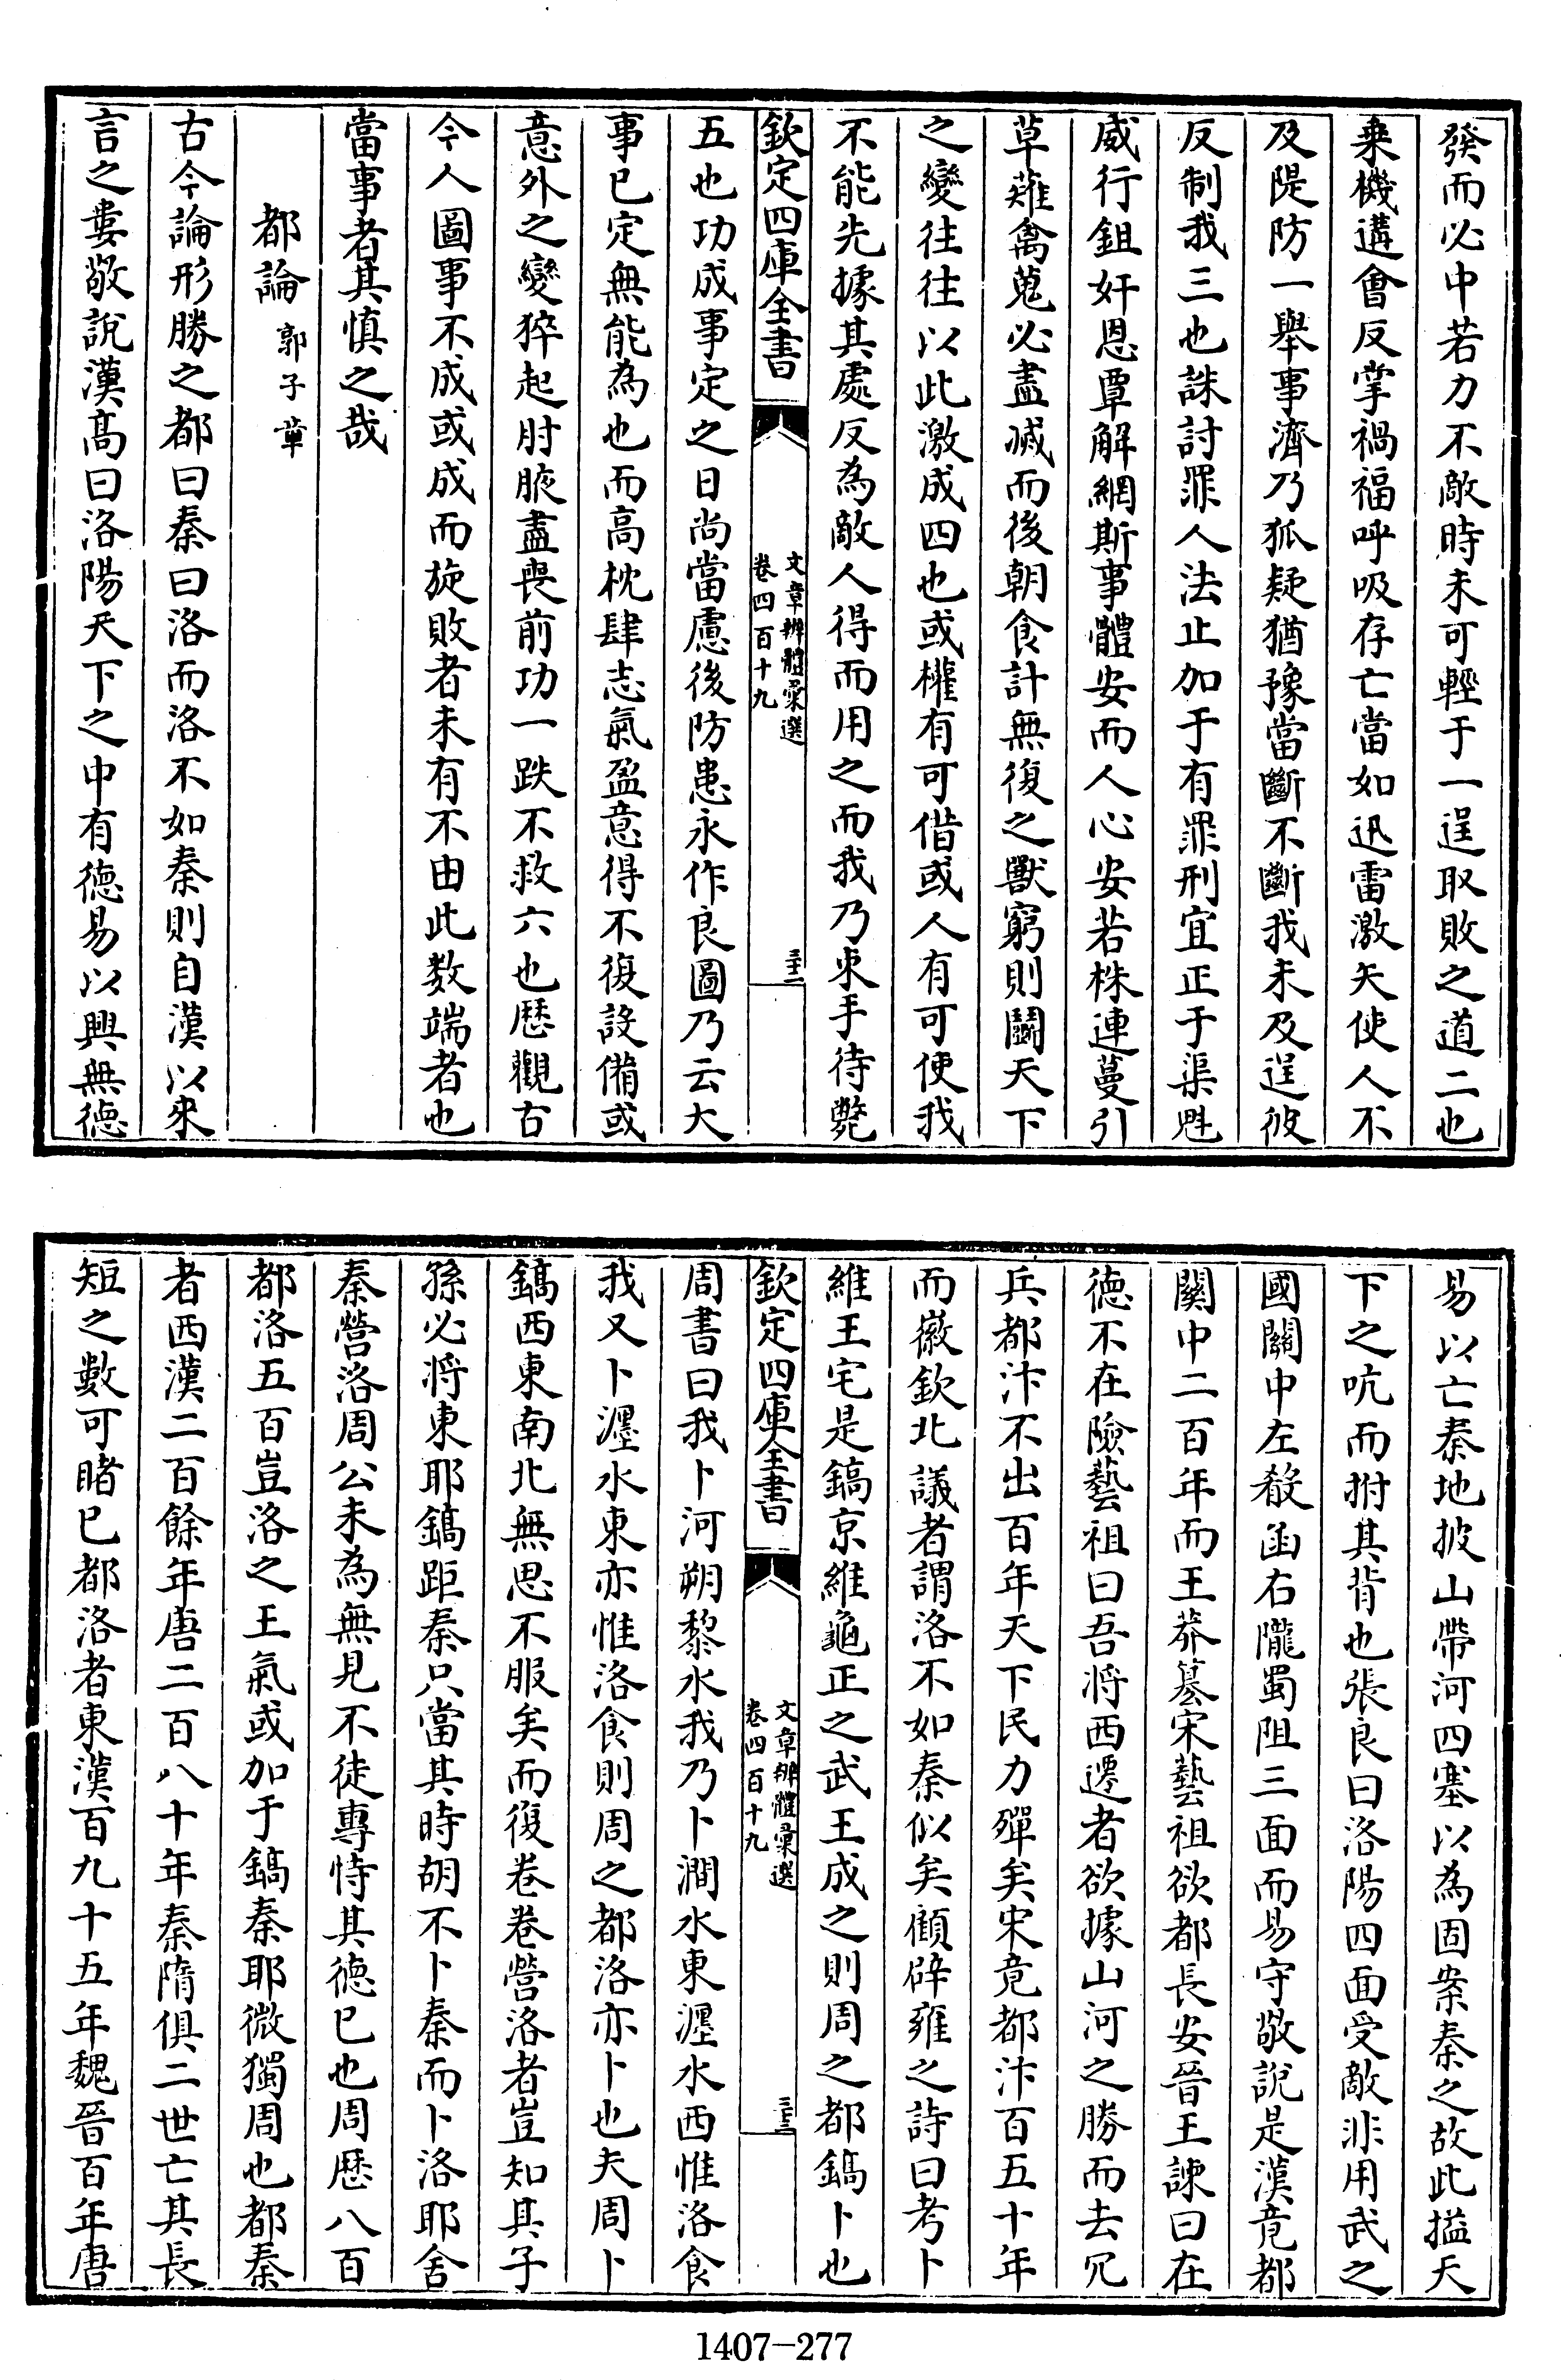 發而必中若力不敵時未可輕于一逞取敗之道二也
乗機遘會反掌禍福呼吸存亡當如迅雷激矢使人不
及隄防一舉事濟乃狐疑猶豫當斷不斷我未及逞彼
反制我三也誅討罪人法止加于有罪刑宜正于渠魁
威行鉏奸恩覃解網斯事體安而人心安若株連蔓引
草薙禽蒐必盡滅而後朝食計無復之獸窮則鬭天下
之變往往以此激成四也或權有可借或人有可使我
不能先據其處反為敵人得而用之而我乃束手待斃
欽定四庫全書
文章辨體彙選
卷四百十九
三十二
五也功成事定之日尚當慮後防患永作良圖乃云大
事已定無能為也而高枕肆志氣盈意得不復設備或
意外之變猝起肘腋盡喪前功一跌不救六也歴觀古
今人圖事不成或成而旋敗者未有不由此數端者也
當事者其慎之哉
都論 郭子章
古今論形勝之都曰秦曰洛而洛不如秦則自漢以來
言之婁敬說漢髙曰洛陽天下之中有德易以興無德
易以亡秦地披山帶河四塞以為固案秦之故此搤天
下之吭而拊其背也張良曰洛陽四面受敵非用武之
國關中左殽函右隴蜀阻三面而易守敬說是漢竟都
關中二百年而王莽簒宋藝祖欲都長安晉王諫曰在
德不在險藝祖曰吾将西遷者欲據山河之勝而去冗
兵都汴不出百年天下民力殫矣宋竟都汴百五十年
而徽欽北議者謂洛不如秦似矣顧辟雍之詩曰考卜
維王宅是鎬京維龜正之武王成之則周之都鎬卜也
欽定四庫全書
文章辨體彙選
卷四百十九
三十三
周書曰我卜河朔黎水我乃卜澗水東瀍水西惟洛食
我又卜瀍水東亦惟洛食則周之都洛亦卜也夫周卜
鎬西東南北無思不服矣而復卷卷營洛者豈知其子
孫必将東耶鎬距秦只當其時胡不卜秦而卜洛耶舍
秦營洛周公未為無見不徒專恃其德已也周歴八百
都洛五百豈洛之王氣或加于鎬秦耶微獨周也都秦
者西漢二百餘年唐二百八十年秦隋俱二世亡其長
短之數可睹已都洛者東漢百九十五年魏晉百年唐
1407-277